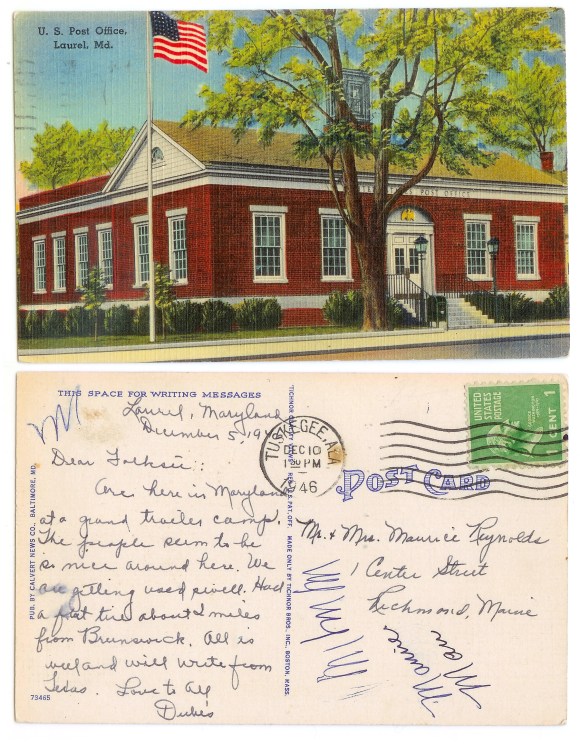 U. S. Post Office,
Laurel, Md.
POST OFFICE
THIS SPACE FOR WRITING MESSAGES
M
Laurel, Maryland
December 5, 194
Dear Folksie:
Are here in Maryland
at a grand trailer camp.
The people seem to be
so nice around here. We
are getting used swell. Had
a flat tire about 2 miles
from Brunswick. All is
well and will write from
Texas. Love to All
Dube's
73465
PUB. BY CALVERT NEWS CO., BALTIMORE, MD.
TICHNOR QUALITY VIEWS
REG. U. S. PAT. OFF. MADE ONLY BY TICHNOR BROS., INC., BOSTON, MASS.
TUSKEGEE, ALA.
DEC 10
PM
1946
UNITED
STATES
POSTAGE
1 CENT 1
POST CARD
Mr. & Mrs. Maurice Reynolds
1 Center Street
Richmond, Maine